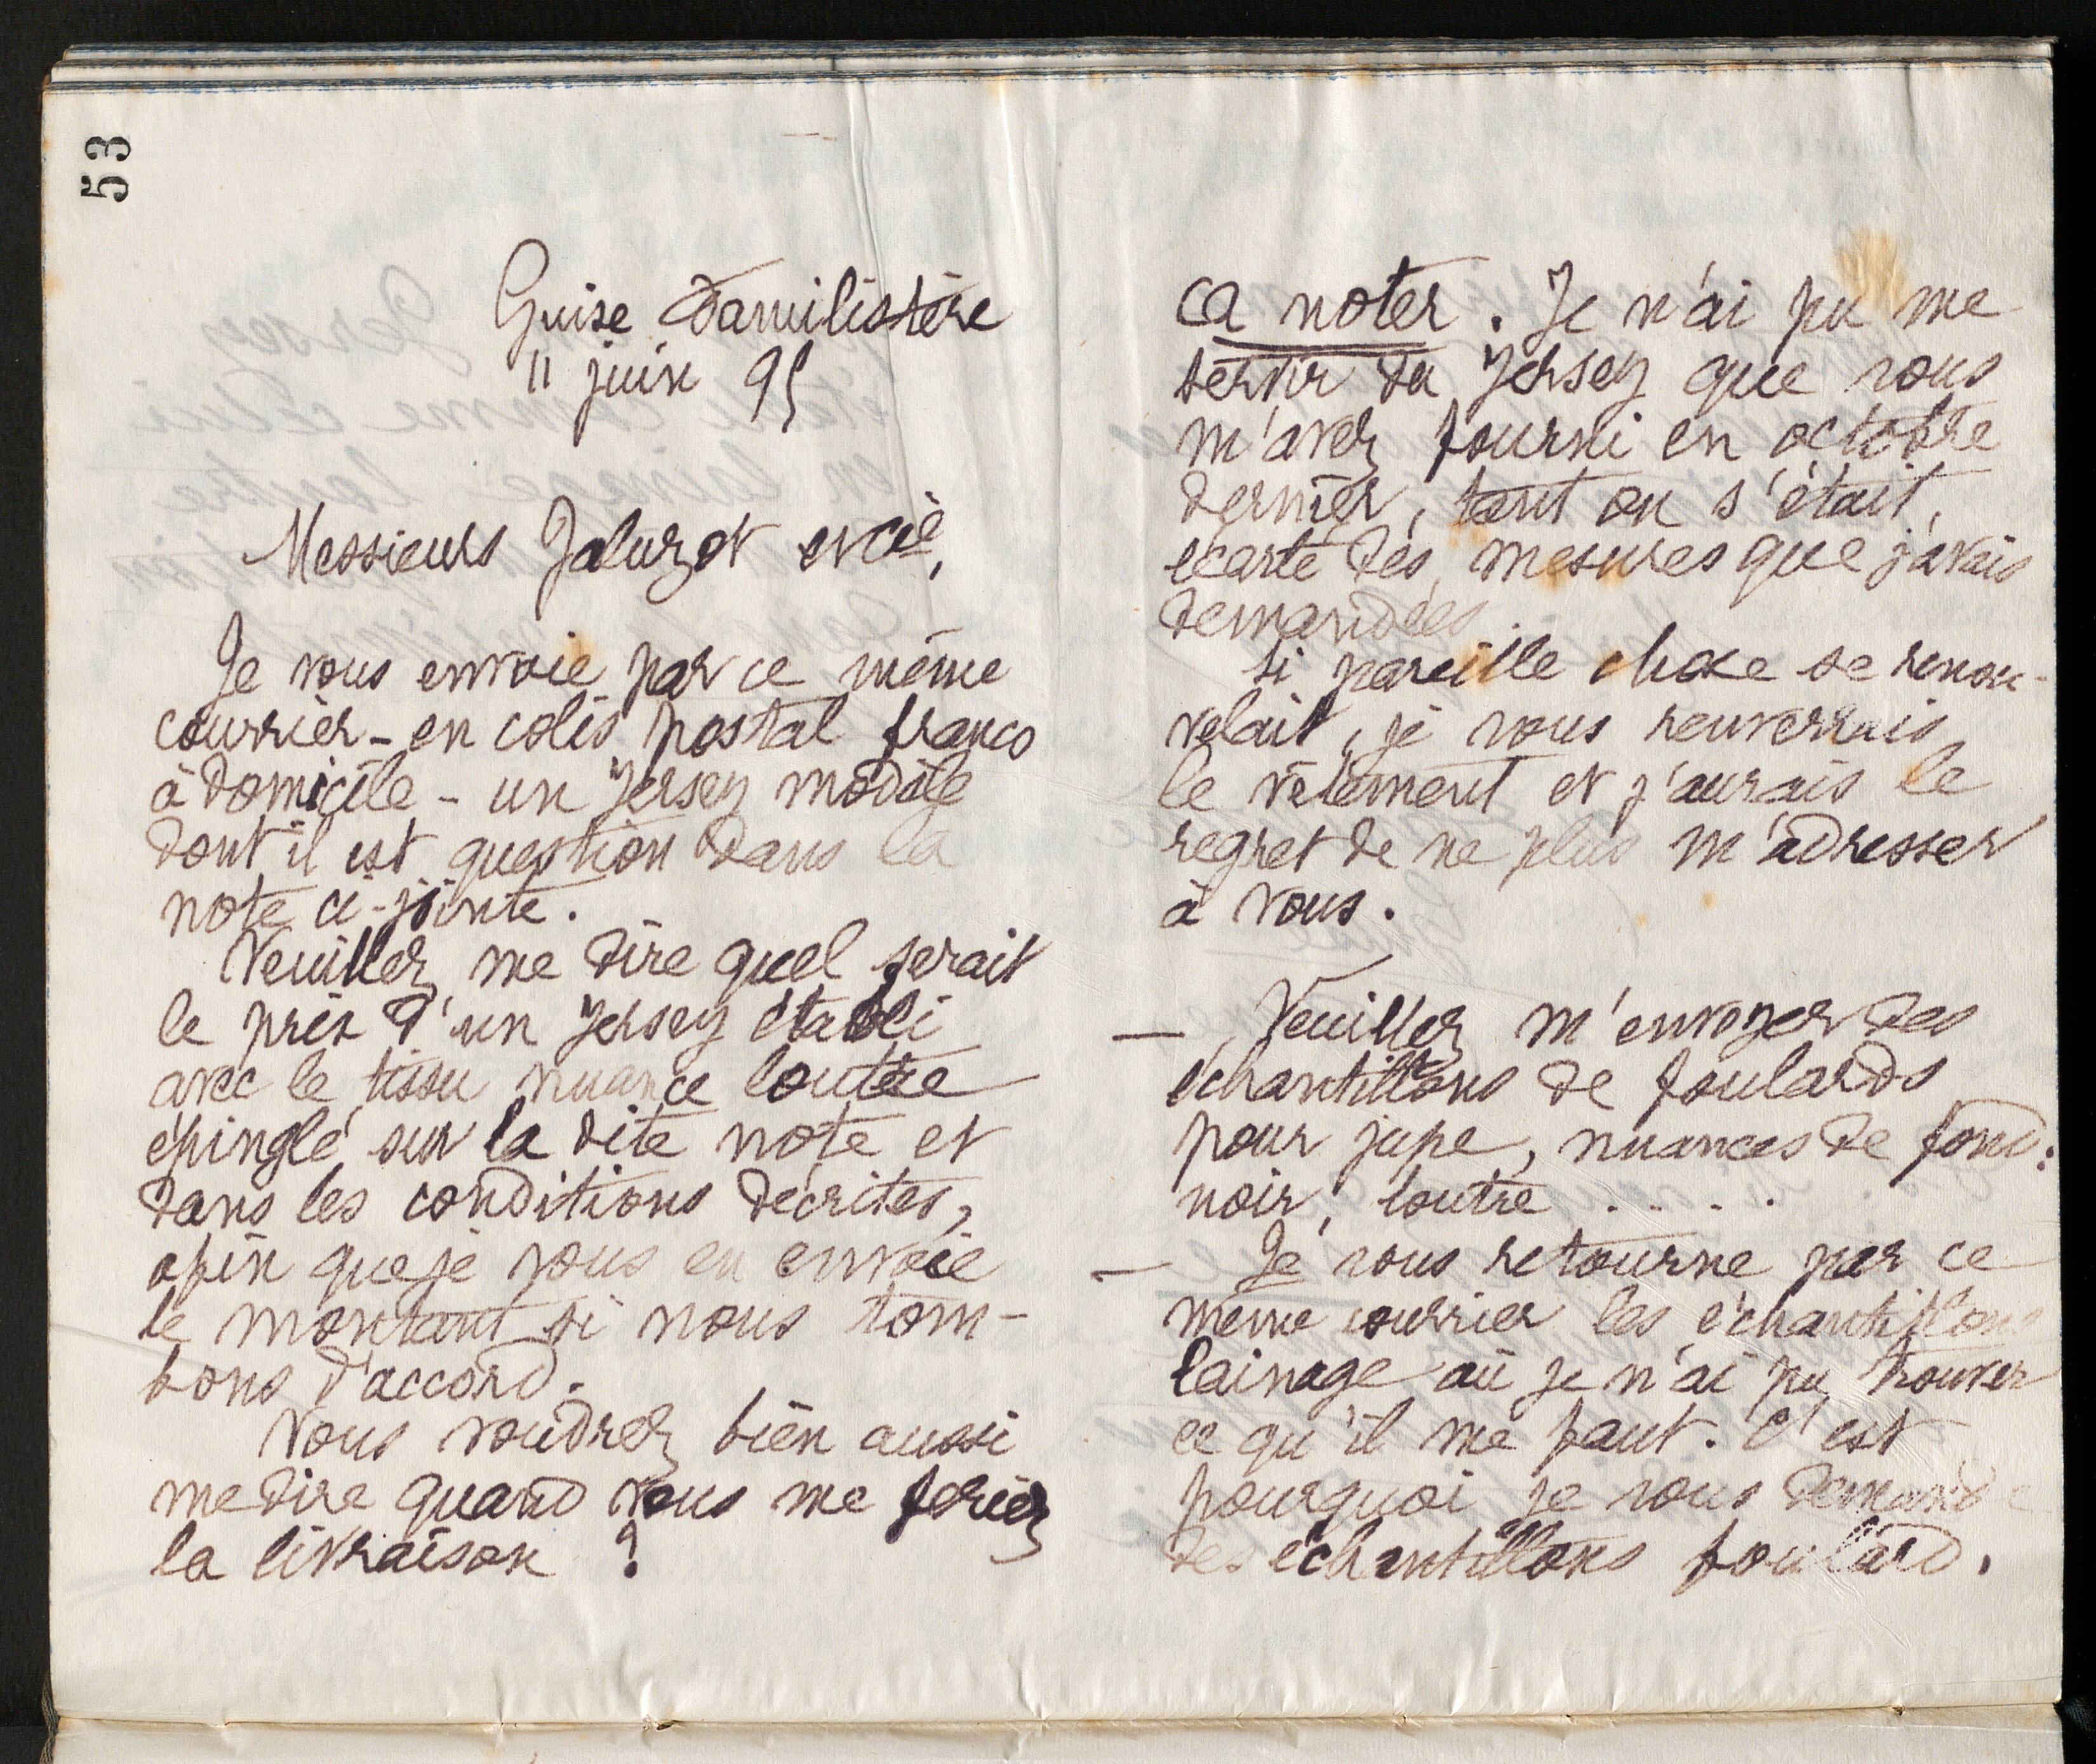 53
Guise Familistère
11 juin 95
Messieurs Jaluzot et Cie,
Je vous envoie par ce même
courrier - en colis postal franco
à domicile - un Jersey modèle
dont il est question dans la
note ci-jointe.
Veuillez me dire quel serait
le prix d'un Jersey établi
avec le tissu nuance loutre
épinglé sur la dite note et
dans les conditions décrites,
afin que je vous en envoie
le montant si nous tom-
bons d'accord.
Vous voudrez bien aussi
me dire quand vous me feriez
la livraison ?
Ca noter. Je n'ai pu me
servir du Jersey que vous
m'avez fourni en octobre
dernier, tant on s'était
écarté des mesures que j'avais
demandées
Si pareille chose se renou-
velait, je vous renverrais
le vêtement et j'aurais le
regret de ne plus m'adresser
à vous.
— Veuillez m'envoyer des
échantillons de foulards
pour jupe, nuances de fond :
noir, loutre . . . .
— Je vous retourne par ce
même courrier les échantillons
lainage où je n'ai pu trouver
ce qu'il me faut. C'est
pourquoi je vous demande
des échantillons foulard.